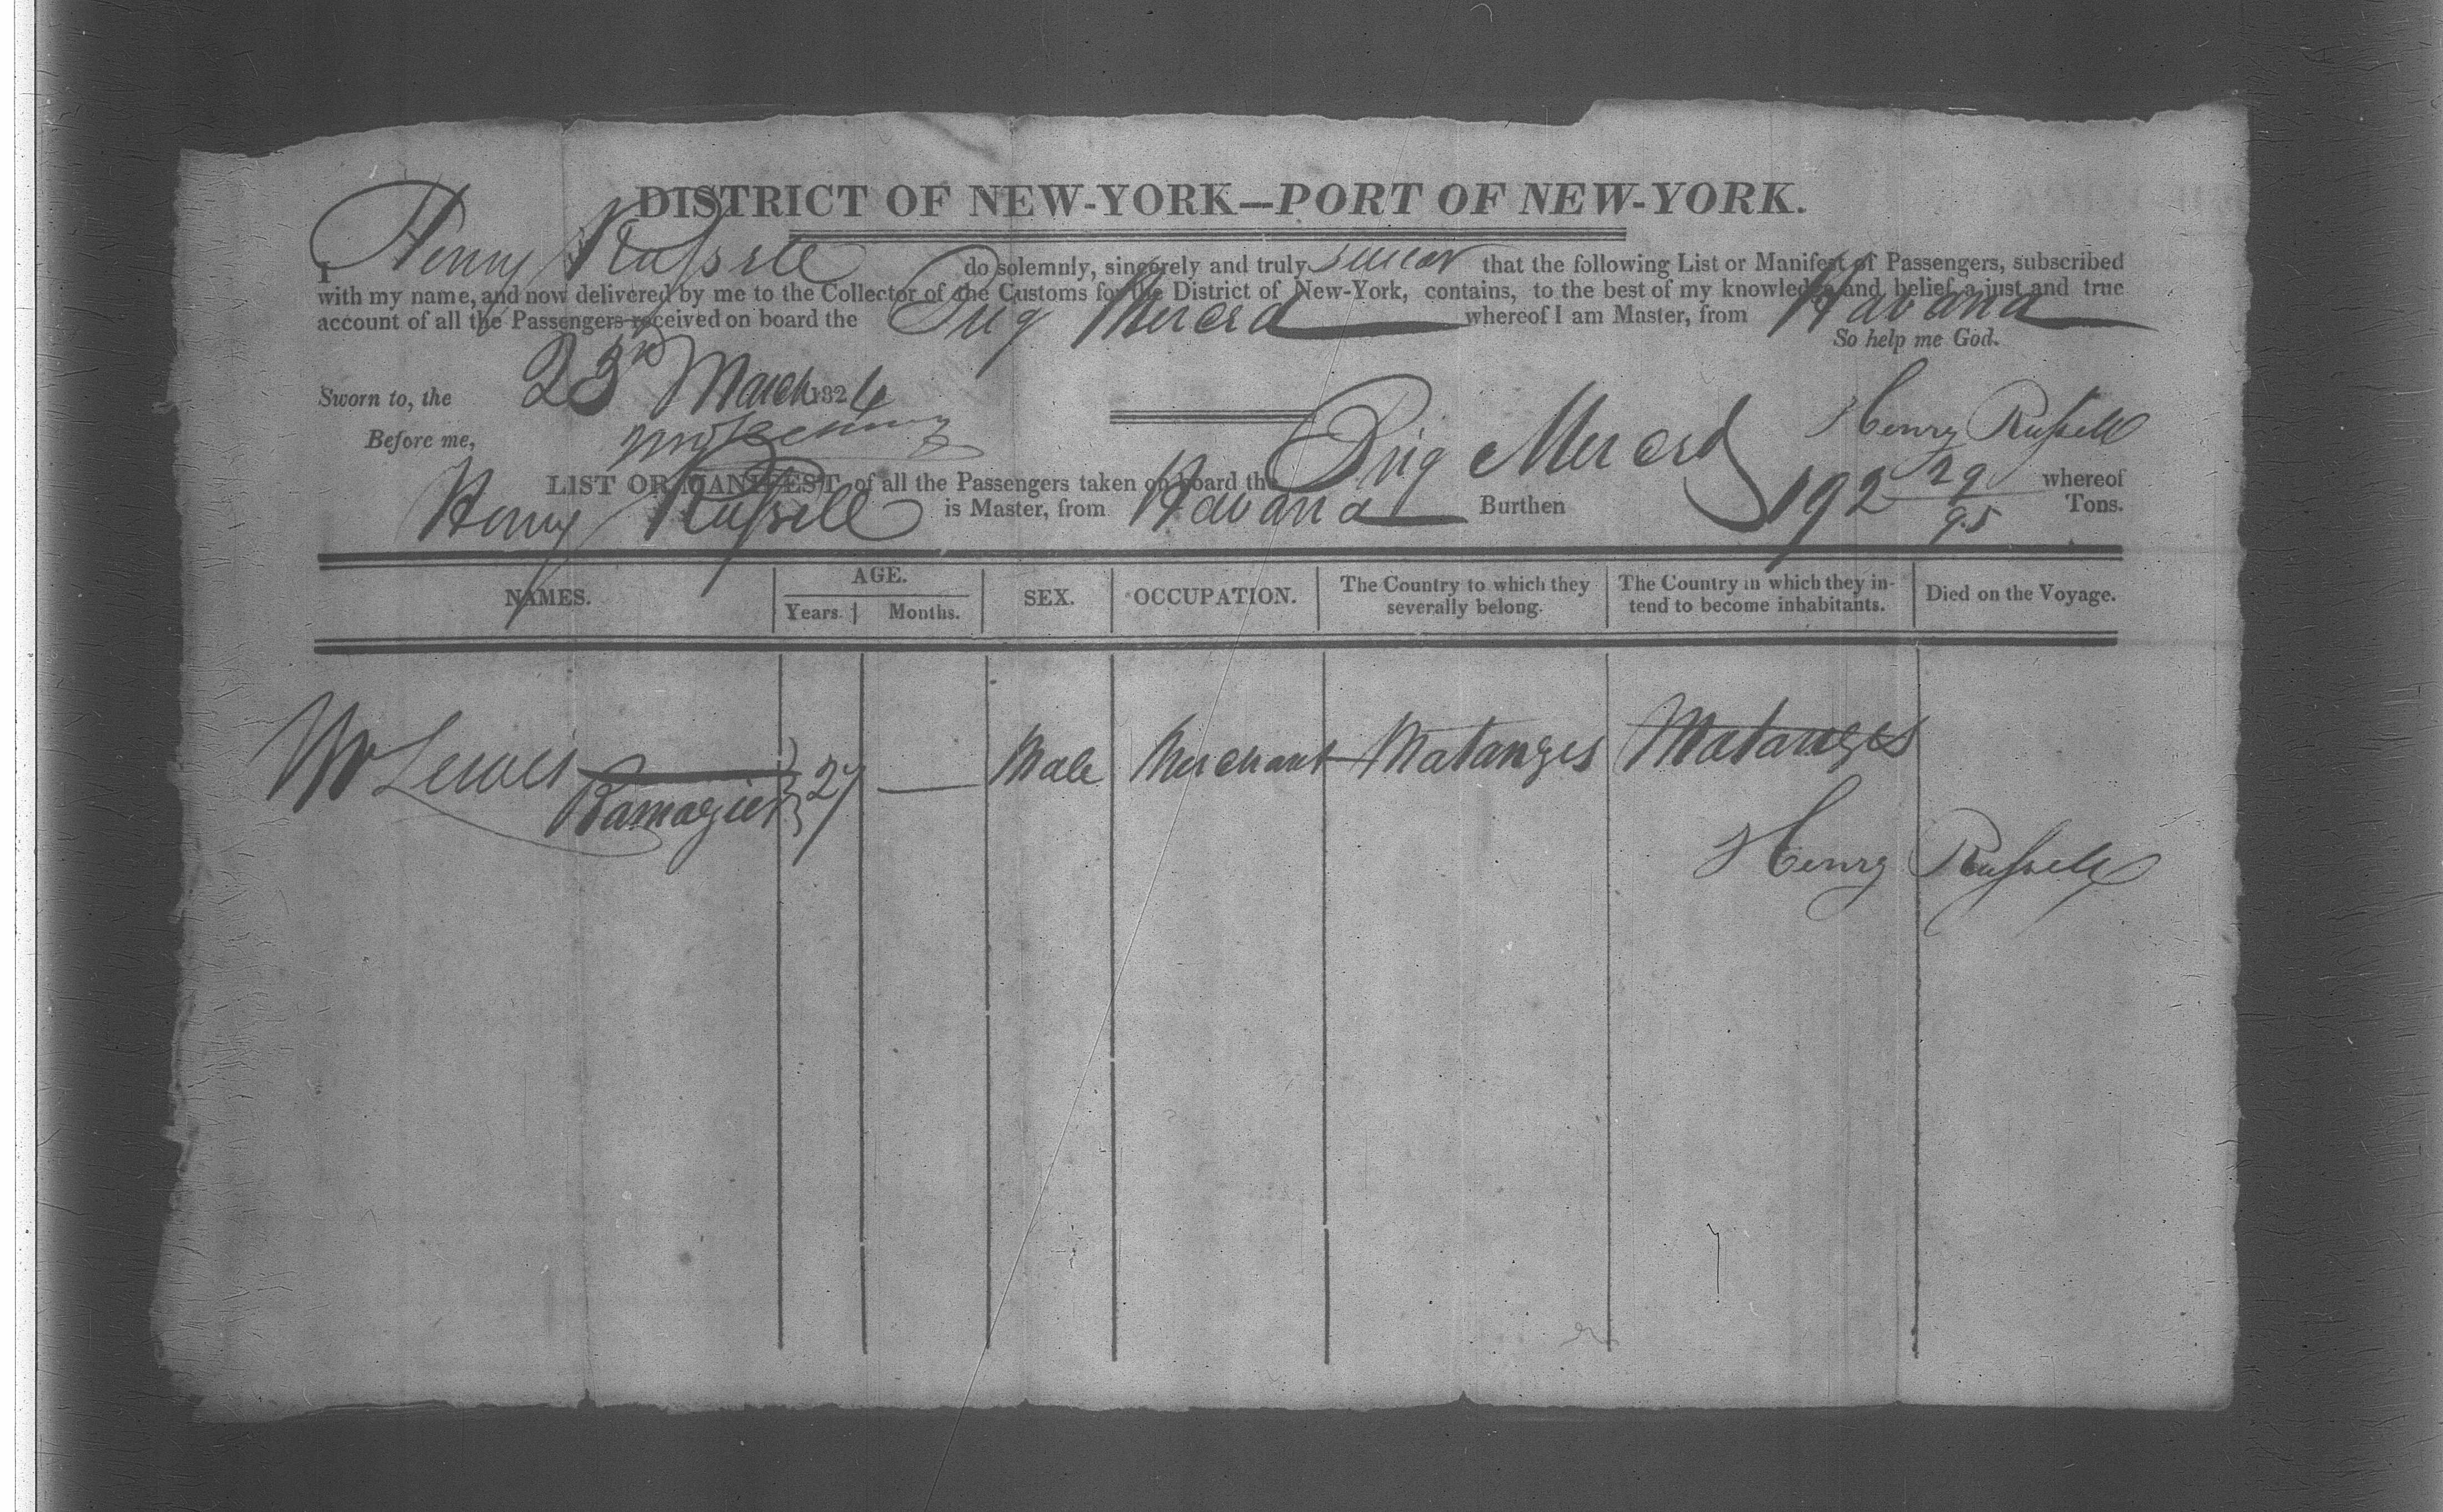 DISTRICT OF NEW-YORK—PORT OF NEW-YORK.
I Henry Russell do solemnly, sincerely and truly swear that the following List or Manifest of Passengers, subscribed
with my name, and now delivered by me to the Collector of the Customs for the District of New-York, contains, to the best of my knowledge and belief, a just and true
account of all the Passengers received on board the Brig whereof I am Master, from Havana
So help me God.
Sworn to, the 23d March 182
Before me,
Henry Russell
LIST OR MANIFEST of all the Passengers taken on board the Brig whereof
Henry Russell is Master, from Havana Burthen 192 29/95 Tons.
NAMES. AGE. Years. Months. SEX. OCCUPATION. The Country to which they severally belong. The Country in which they intend to become inhabitants. Died on the Voyage.
Mr Lewis 27 — Male Merchant Matanzes Matanzes
Henry Russell